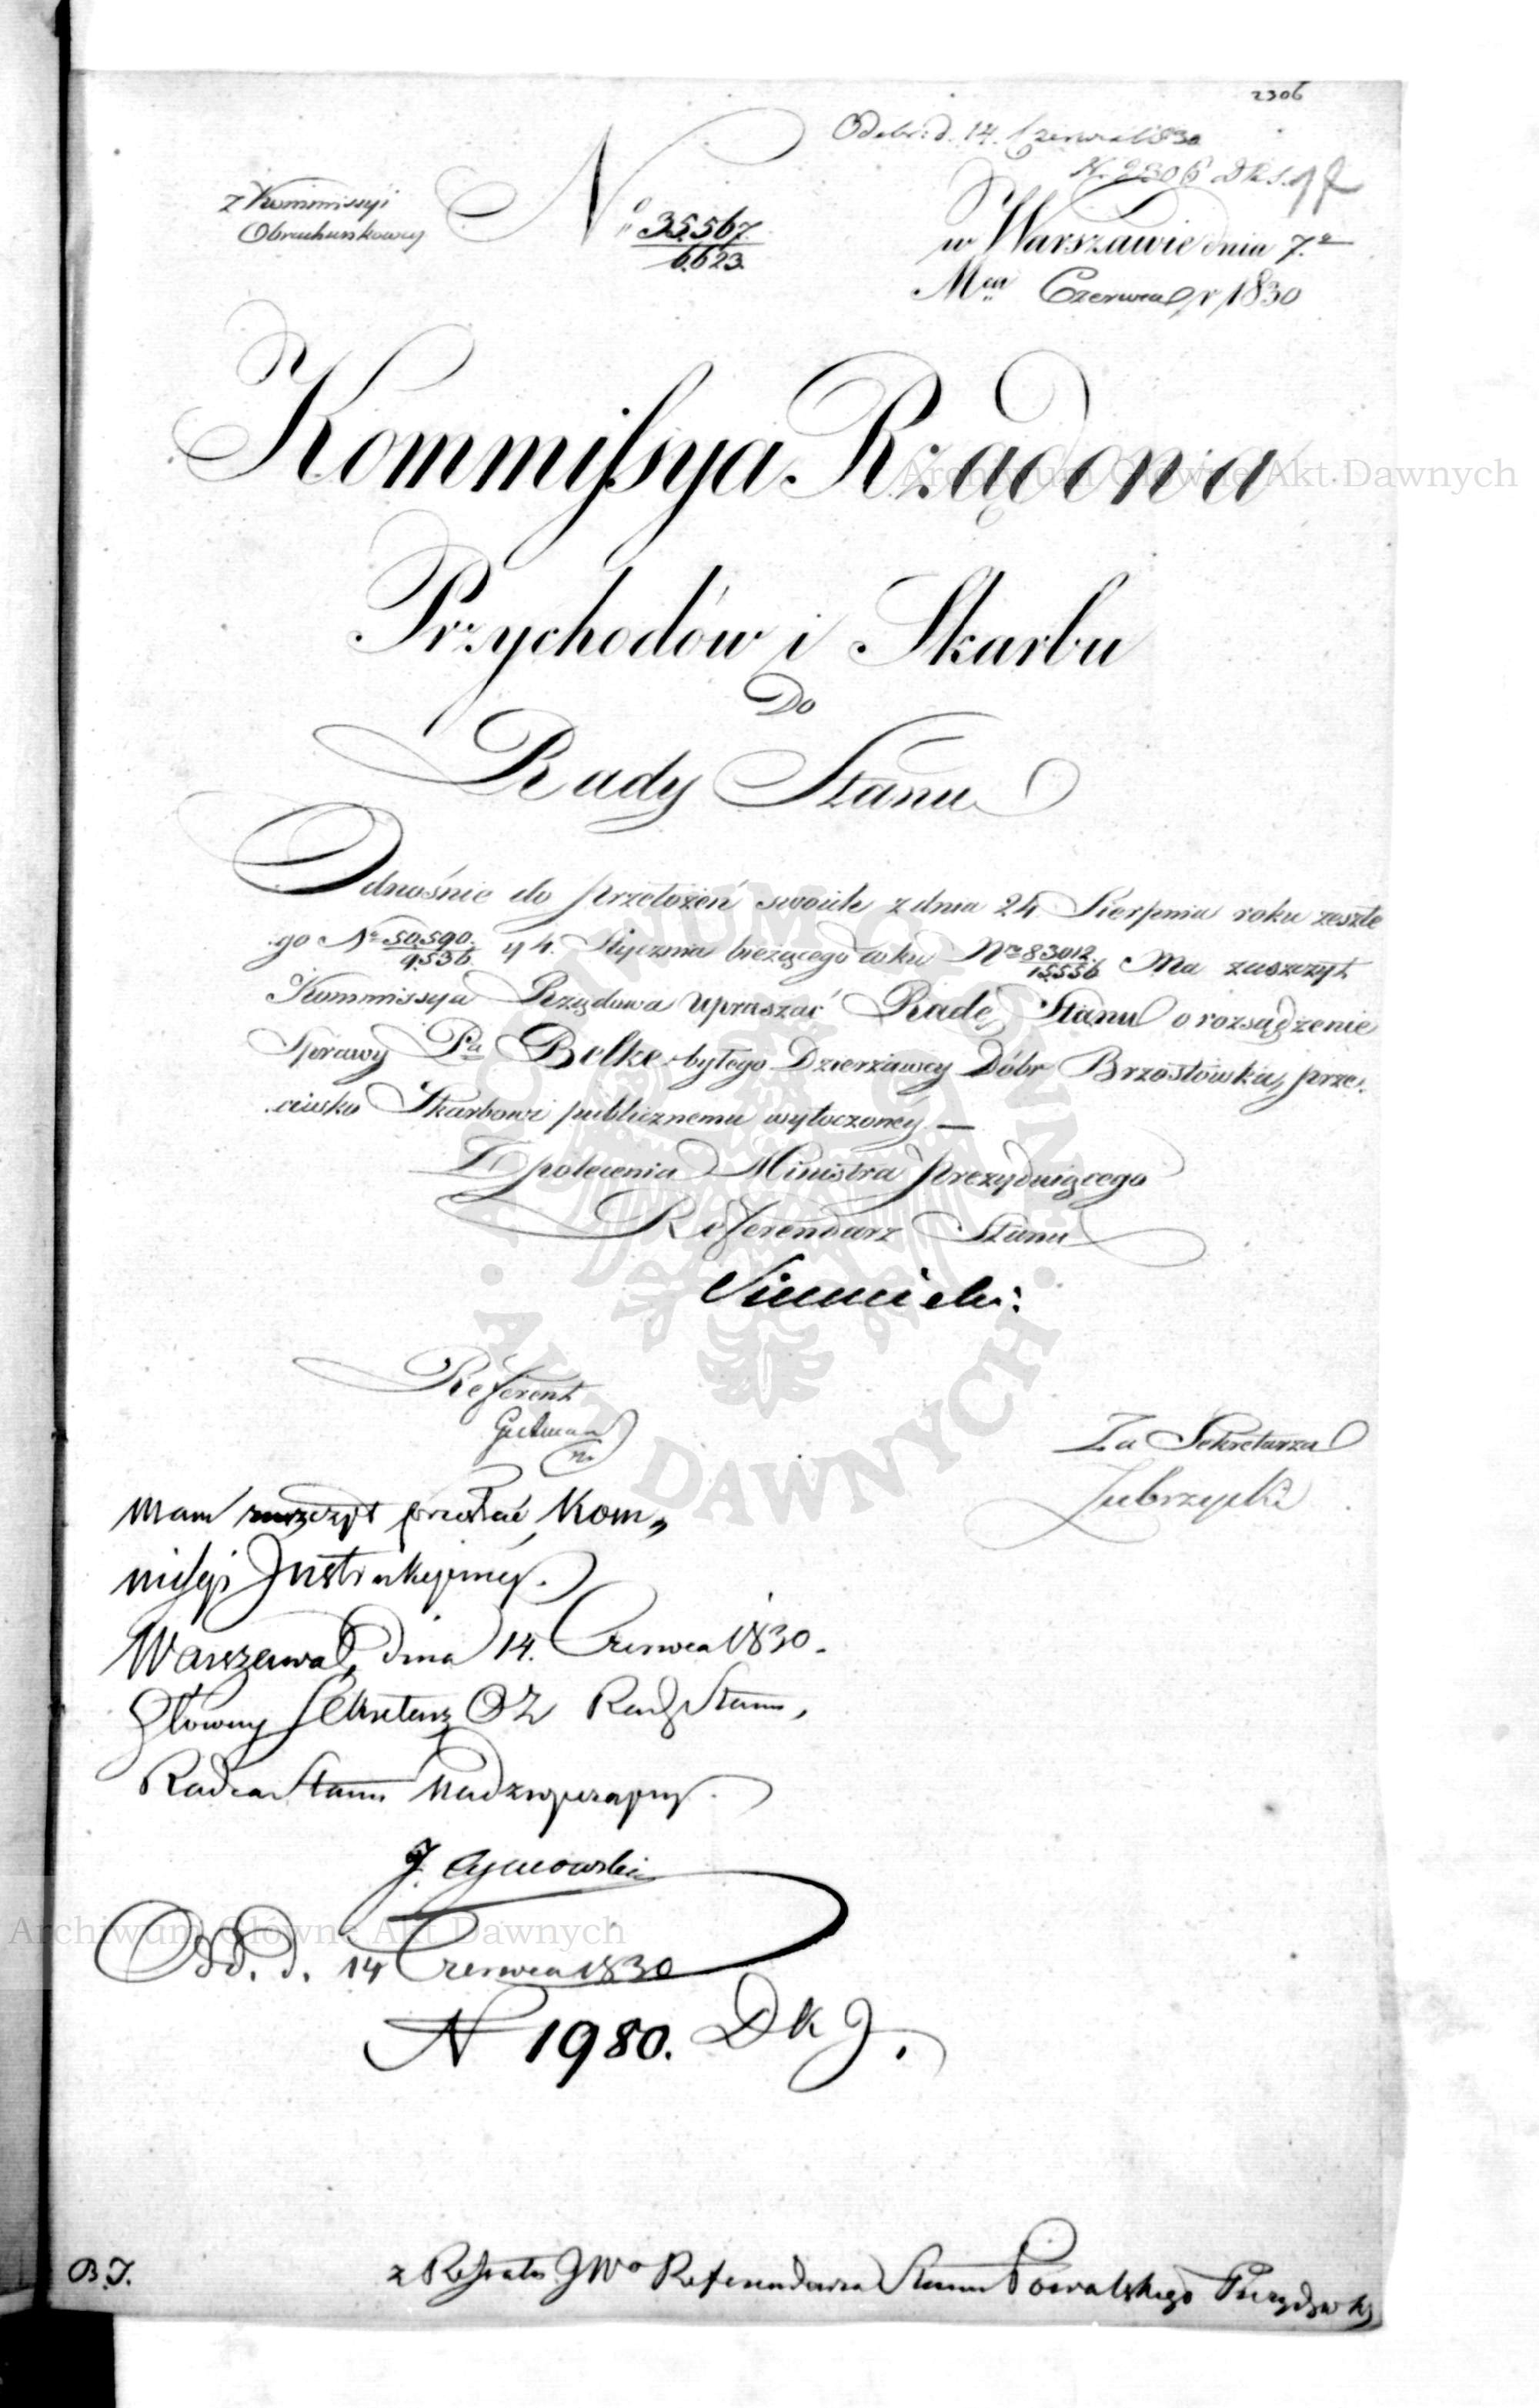 2306
Odebr: d. 14. Czerwca 1830
N. 2306 D R S.
z Kommissyi
Obrachunkowey
No 35.567.
6.623.
w Warszawie dnia 7.o
Mca Czerwca r 1830
Kommissya Rządowa
Przychodów i Skarbu
Do
Rady Stanu
Odnośnie do przełożeń swoich z dnia 24 Sierpnia roku zeszłe
go No 50.590. y 4. Stycznia bieżącego roku Nro 83012. Ma zaszczyt
9.536. 15556
Kommissya Rządowa upraszać Radę Stanu o rozsądzenie
Sprawy Pa Belke byłego Dzierżawcy Dóbr Brzostówka, prze-
ciwko Skarbowi publicznemu wytoczoney. —
Z polecenia Ministra Prezyduiącego
Referendarz Stanu
Referent
Gutman
Za Sekretarza
Zubrzycki
Mam zaszczyt przesłać Kom„
missyi Instrukcyiney.
Warszawa, dnia 14. Czerwca 1830.
Główny Sekretarz Rady Stanu,
Radca Stanu Nadzwyczayny.
Od. d. 14 Czerwca 1830
N 1980. D K J.
B.J.
z Referatu JWo Referendarza Stanu Kowalskiego
Archiwum Główne Akt Dawnych
Archiwum Główne Akt Dawnych
ARCHIWUM GŁÓWNE · AKT DAWNYCH ·